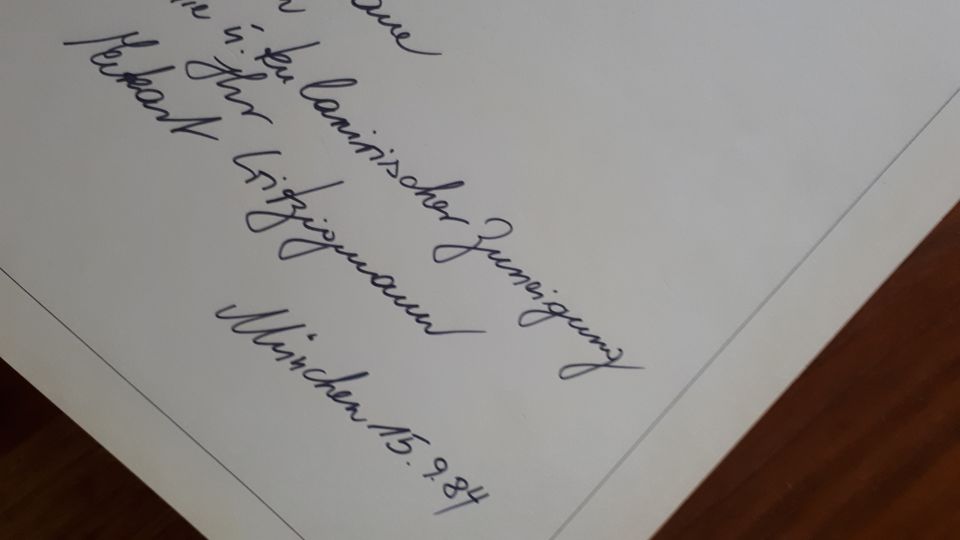 u. kulinarischer Zuneigung
Ihr
Eckart Witzigmann
München 15.9.84